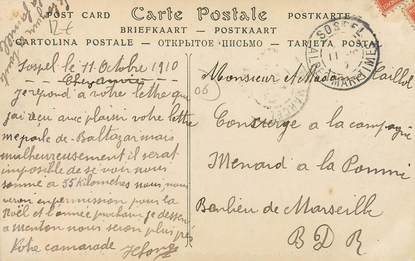 POST CARD Carte Postale POSTKARTE
BRIEFKAART — POSTKAART
CARTOLINA POSTALE — ОТКРЫТОЕ ПИСЬМО — TARJETA POSTAL
12€
SOSPEL
ALPES MARITIMES
06
Sospel le 11 Octobre 1910
Cher
Je répond à votre lettre que
j'ai reçu avec plaisir votre lettre
me parle de Baltazar mais
malheureusement il serat
imposible de se voir nous
somme a 35 kilometres nous nous
veron en permission pour la
Noël et l'année prochain je dessen
a menton nous seron plus pré
Votre camarade
Monsieur et Madame Caillol
Concierge a la campagne
Menard a la Pomme
Banlieu de Marseille
B D R